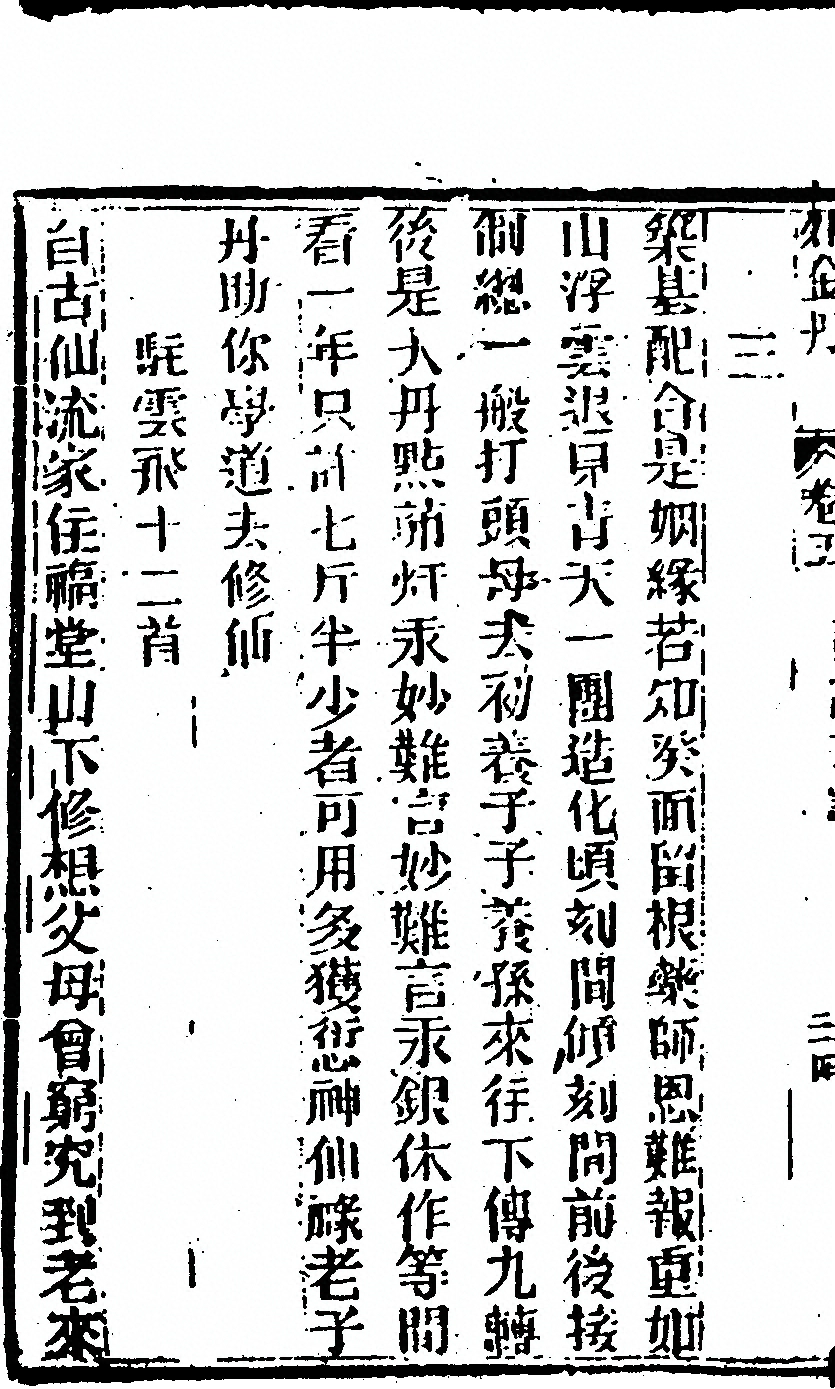 金丹 卷五 三四
三
築基配合是姻緣若知癸而留根藥師恩難報重如
山浮雲退見青天一團造化頃刻間傾刻間前後接
制總一般打頭母夫初養子子養孫來往下傳九轉
後是大丹點茆灯汞妙難言妙難言汞銀休作等閒
看一年只許七斤半少者可用多獲愆神仙祿老子
丹助你學道去修仙
駐雲飛十二首
自古仙流家住福堂山下修想父母曾窮究到老來